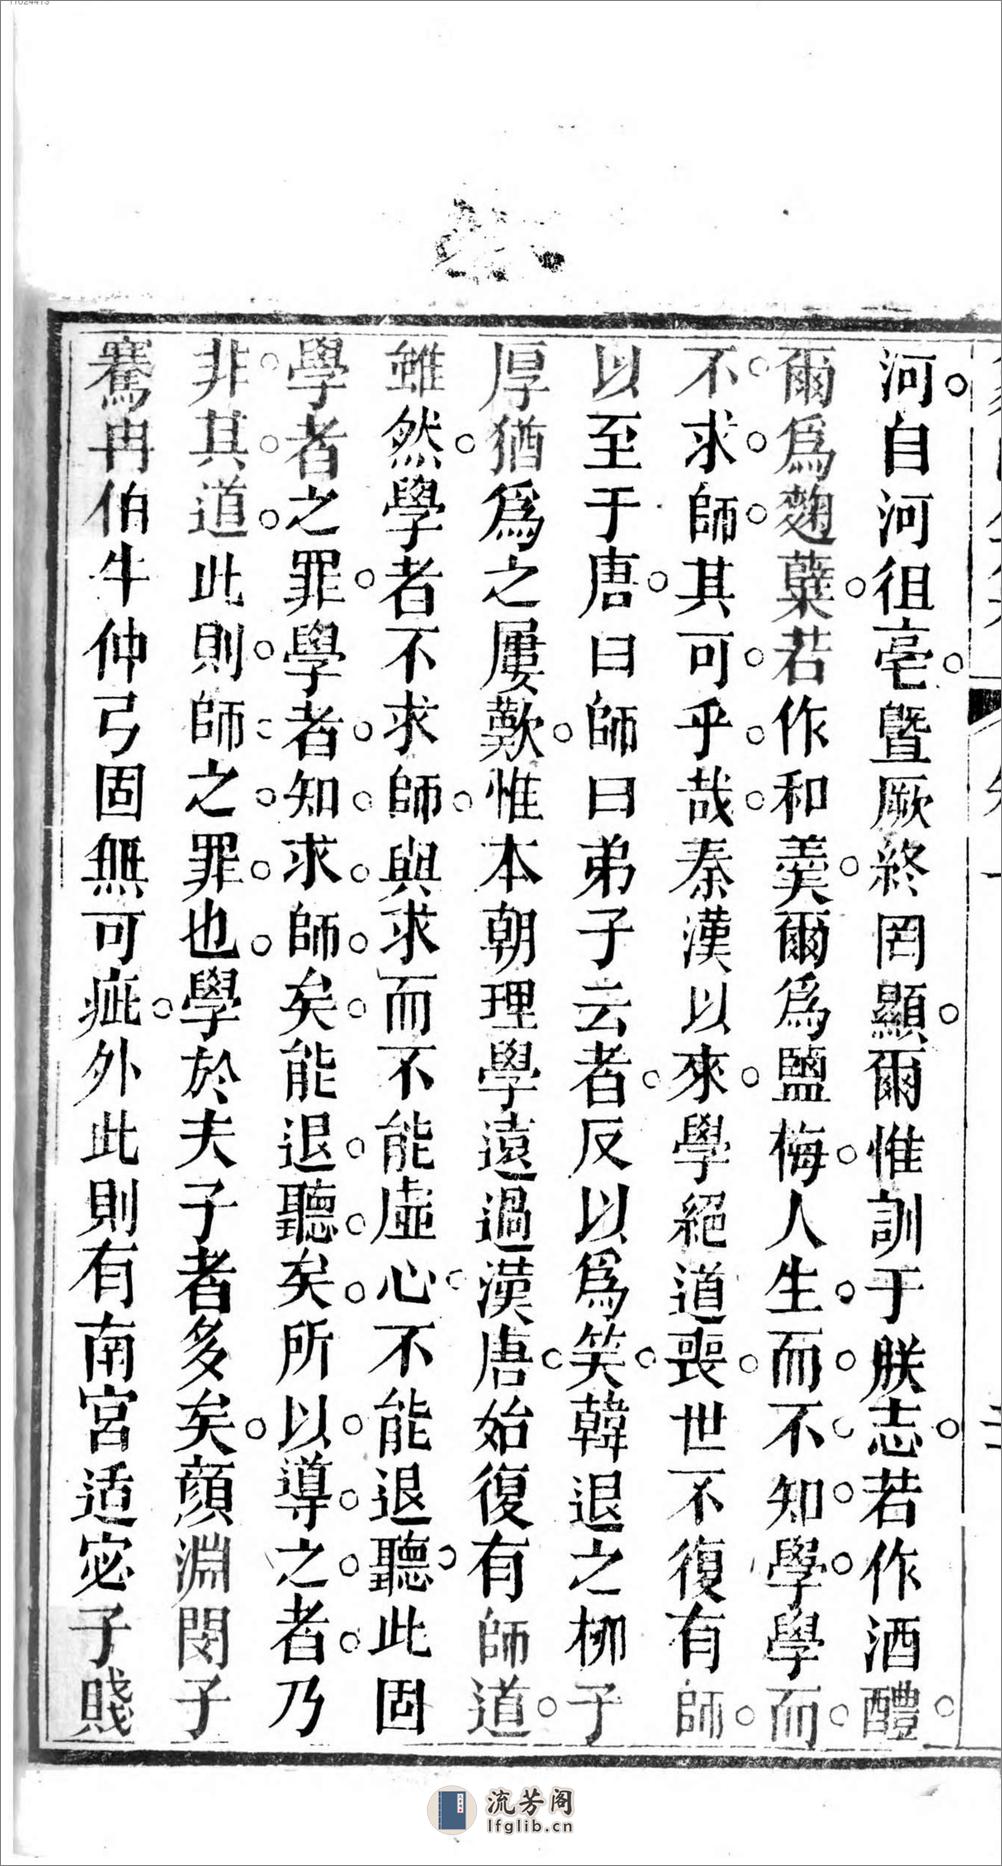 河自河徂亳暨厥終罔顯爾惟訓于朕志若作酒醴
爾爲麴糵若作和羹爾爲鹽梅人生而不知學學而
不求師其可乎哉秦漢以來學絕道喪世不復有師
以至于唐曰師曰弟子云者反以爲笑韓退之柳子
厚猶爲之屢歎惟本朝理學遠過漢唐始復有師道
雖然學者不求師與求而不能虛心不能退聽此固
學者之罪學者知求師矣能退聽矣所以導之者乃
非其道此則師之罪也學於夫子者多矣顏淵閔子
騫冉伯牛仲弓固無可疵外此則有南宮适宓子賤
流芳阁
lfglib.cn